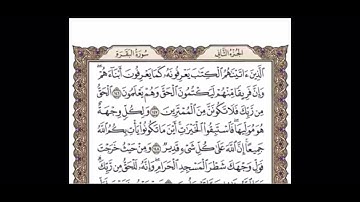 الجزء الثاني
سورة البقرة
الَّذِينَ ءَاتَيْنَٰهُمُ الْكِتَٰبَ يَعْرِفُونَهُۥ كَمَا يَعْرِفُونَ أَبْنَآءَهُمْ
وَإِنَّ فَرِيقًا مِّنْهُمْ لَيَكْتُمُونَ الْحَقَّ وَهُمْ يَعْلَمُونَ ١٤٦ الْحَقُّ
مِن رَّبِّكَ فَلَا تَكُونَنَّ مِنَ الْمُمْتَرِينَ ١٤٧ وَلِكُلٍّ وِجْهَةٌ
هُوَ مُوَلِّيهَا فَاسْتَبِقُوا الْخَيْرَٰتِ أَيْنَ مَا تَكُونُوا يَأْتِ بِكُمُ اللَّهُ
جَمِيعًا إِنَّ اللَّهَ عَلَىٰ كُلِّ شَىْءٍ قَدِيرٌ ١٤٨ وَمِنْ حَيْثُ خَرَجْتَ
فَوَلِّ وَجْهَكَ شَطْرَ الْمَسْجِدِ الْحَرَامِ وَإِنَّهُۥ لَلْحَقُّ مِن رَّبِّكَ